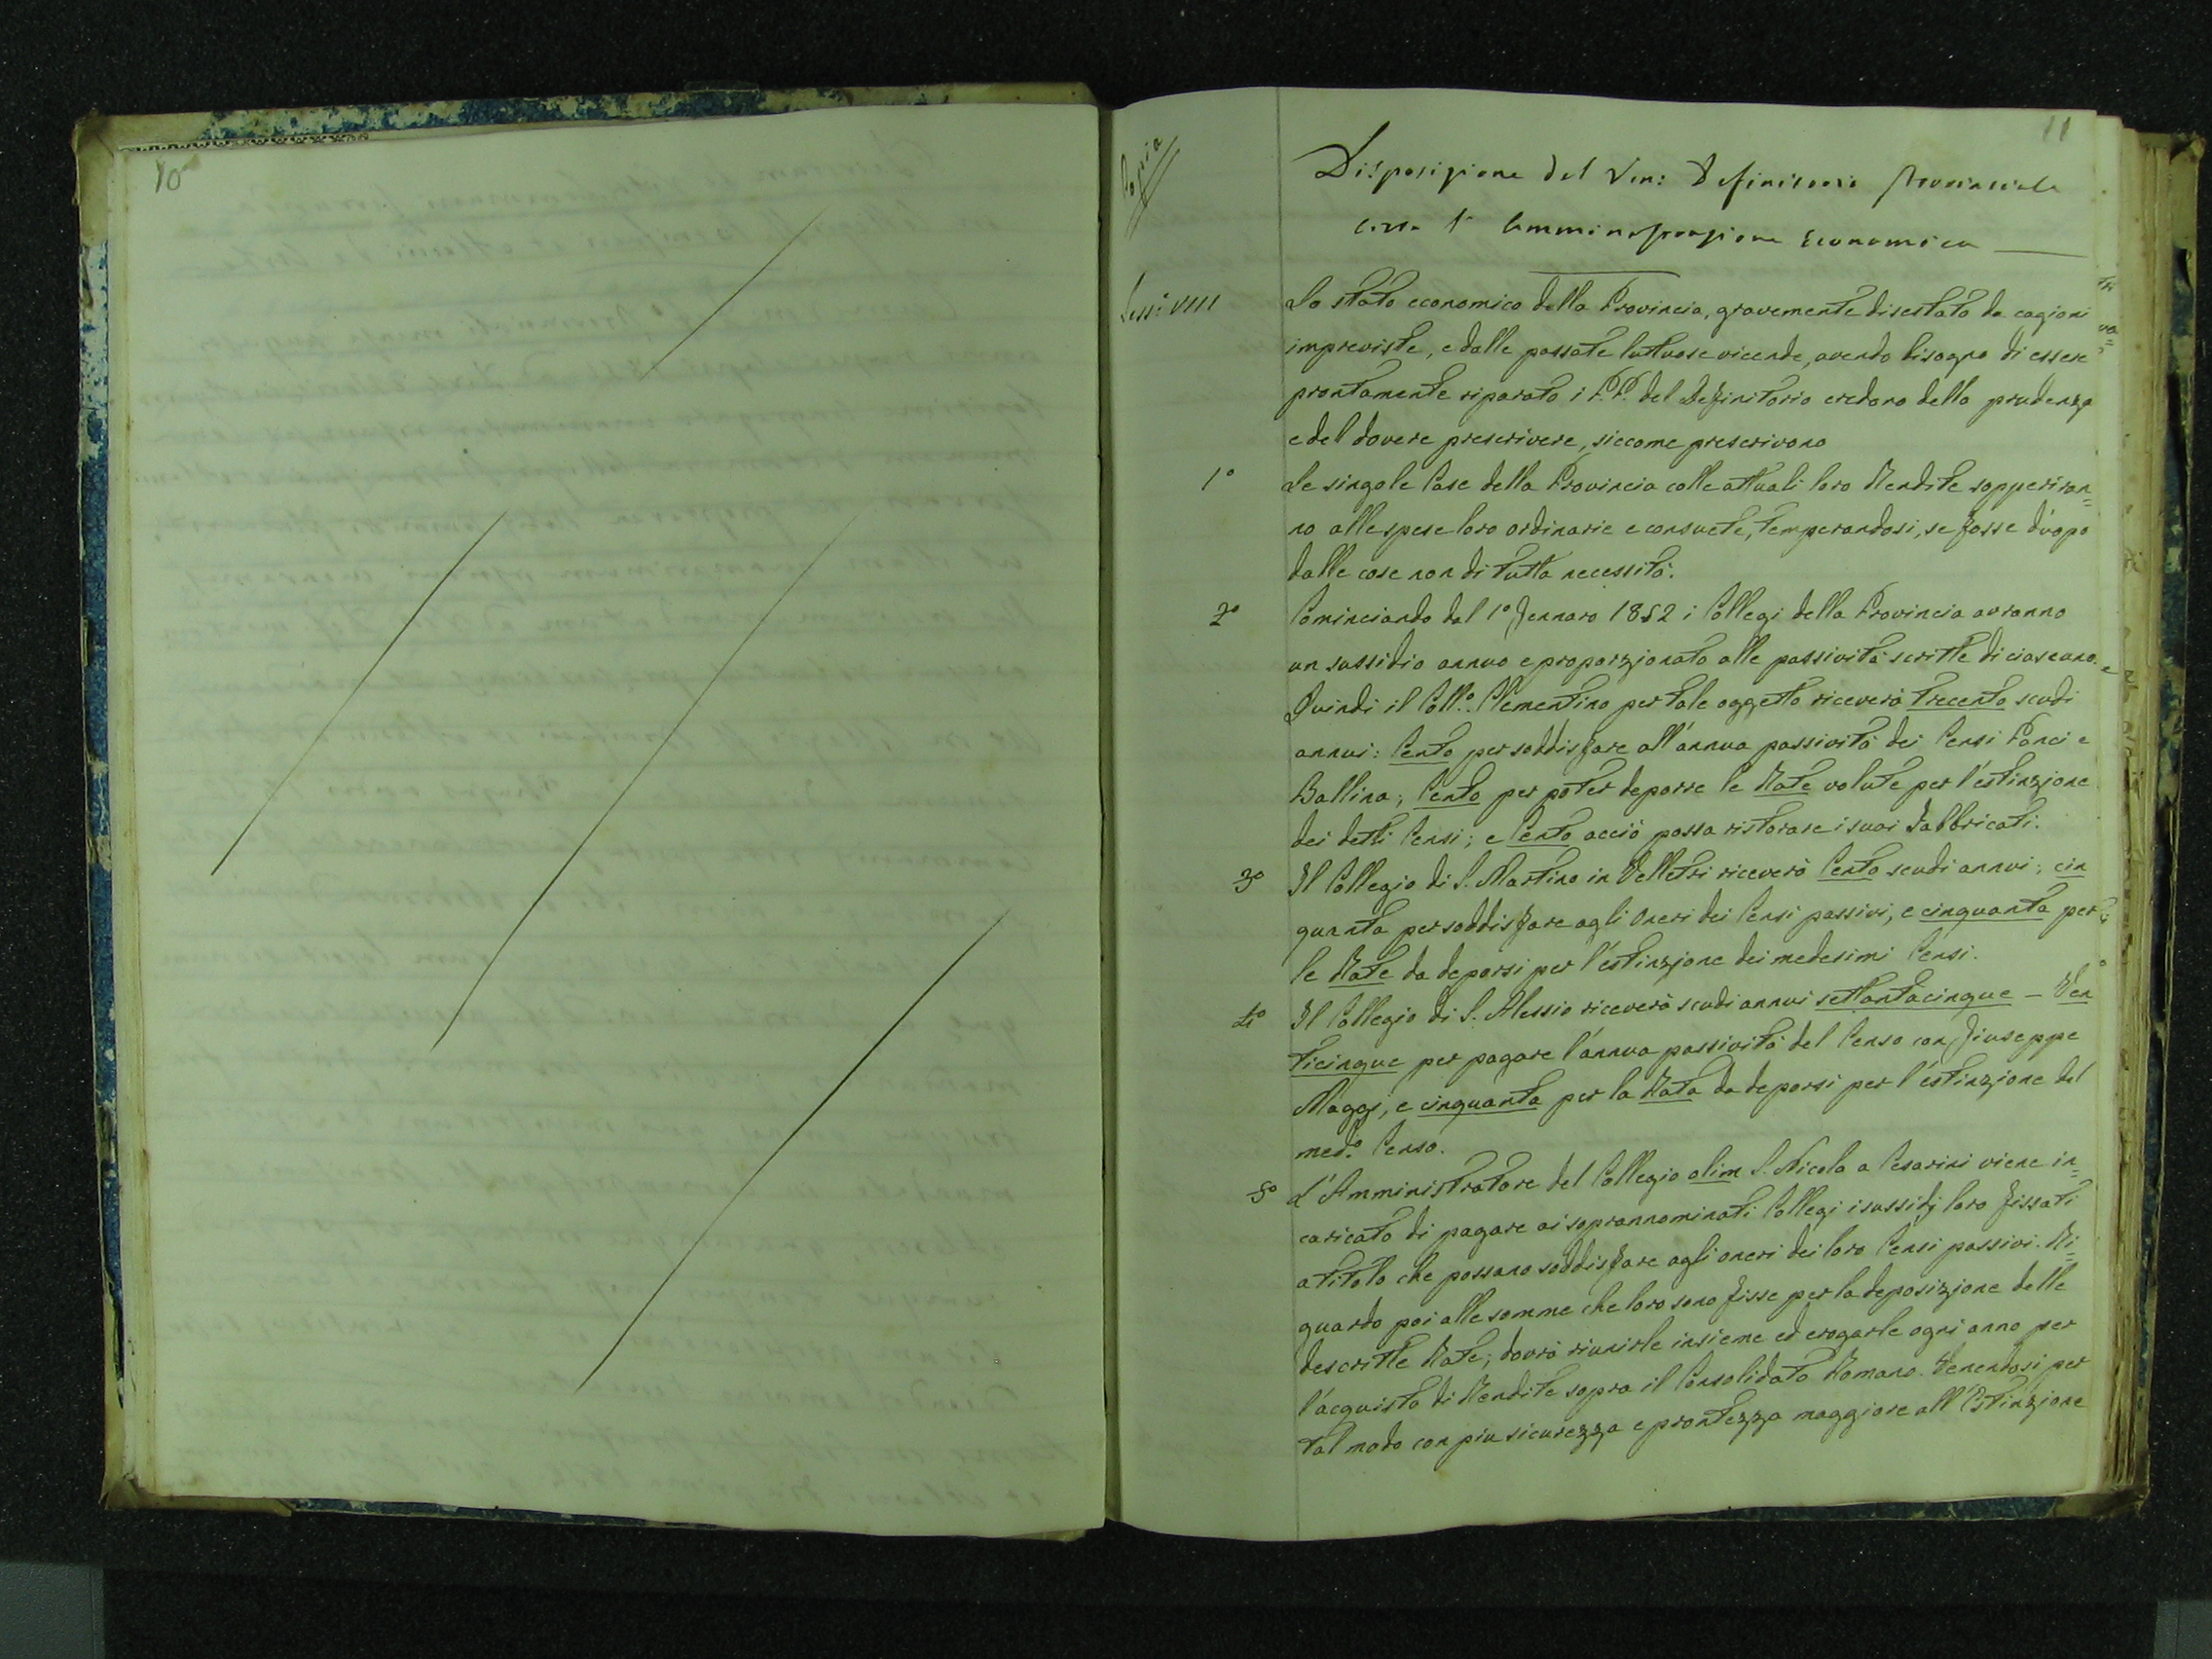 10
11
Copia
Disposizione del Ven: Definitorio Provinciale
circa l'Amministrazione Economica
Sess: VIII
Lo stato economico della Provincia, gravemente disestato da cagioni
impreviste, e dalle passate luttuose vicende, avendo bisogno di essere
prontamente riparato i P.P. del Definitorio credono della prudenza
e del dovere prescrivere, siccome prescrivono
1° Le singole Case della Provincia colle attuali loro Rendite sopperiran=
no alle spese loro ordinarie e consuete, temperandosi, se fosse d'uopo
dalle cose non di tutta necessità.
2° Cominciando dal 1° Jennaro 1852 i Collegi della Provincia avranno
un sussidio annuo e proporzionato alle passività scritte di ciascuno.
Quindi il Coll.° Clementino per tale oggetto riceverà trecento scudi
annui: Cento per soddisfare all'annua passività dei Censi Fonci e
Ballina; Cento per poter deporre le Rate volute per l'estinzione
dei detti Censi; e Cento acciò possa ristorare i suoi Fabbricati.
3° Il Collegio di S. Martino in Velletri riceverà Cento scudi annui; cin
quanta per soddisfare agli Oneri dei Censi passivi, e cinquanta per
le Rate da deporsi per l'estinzione dei medesimi Censi.
4° Il Collegio di S. Alessio riceverà scudi annui settantacinque - Ven
ticinque per pagare l'annua passività del Censo con Giuseppe
Maggi, e cinquanta per la Rata da deporsi per l'estinzione del
med.° Censo.
5° L'Amministratore del Collegio olim S. Nicola a Cesarini viene in=
caricato di pagare ai soprannominati Collegi i sussidj loro fissati
a titolo che possano soddisfare agli oneri dei loro Censi passivi. Ri=
guardo poi alle somme che loro sono fisse per la deposizione delle
descritte Rate; dovrà riunirle insieme ed erogarle ogni anno per
l'acquisto di Rendite sopra il Consolidato Romano. Venendosi per
tal modo con piu sicurezza e prontezza maggiore all'Estinzione